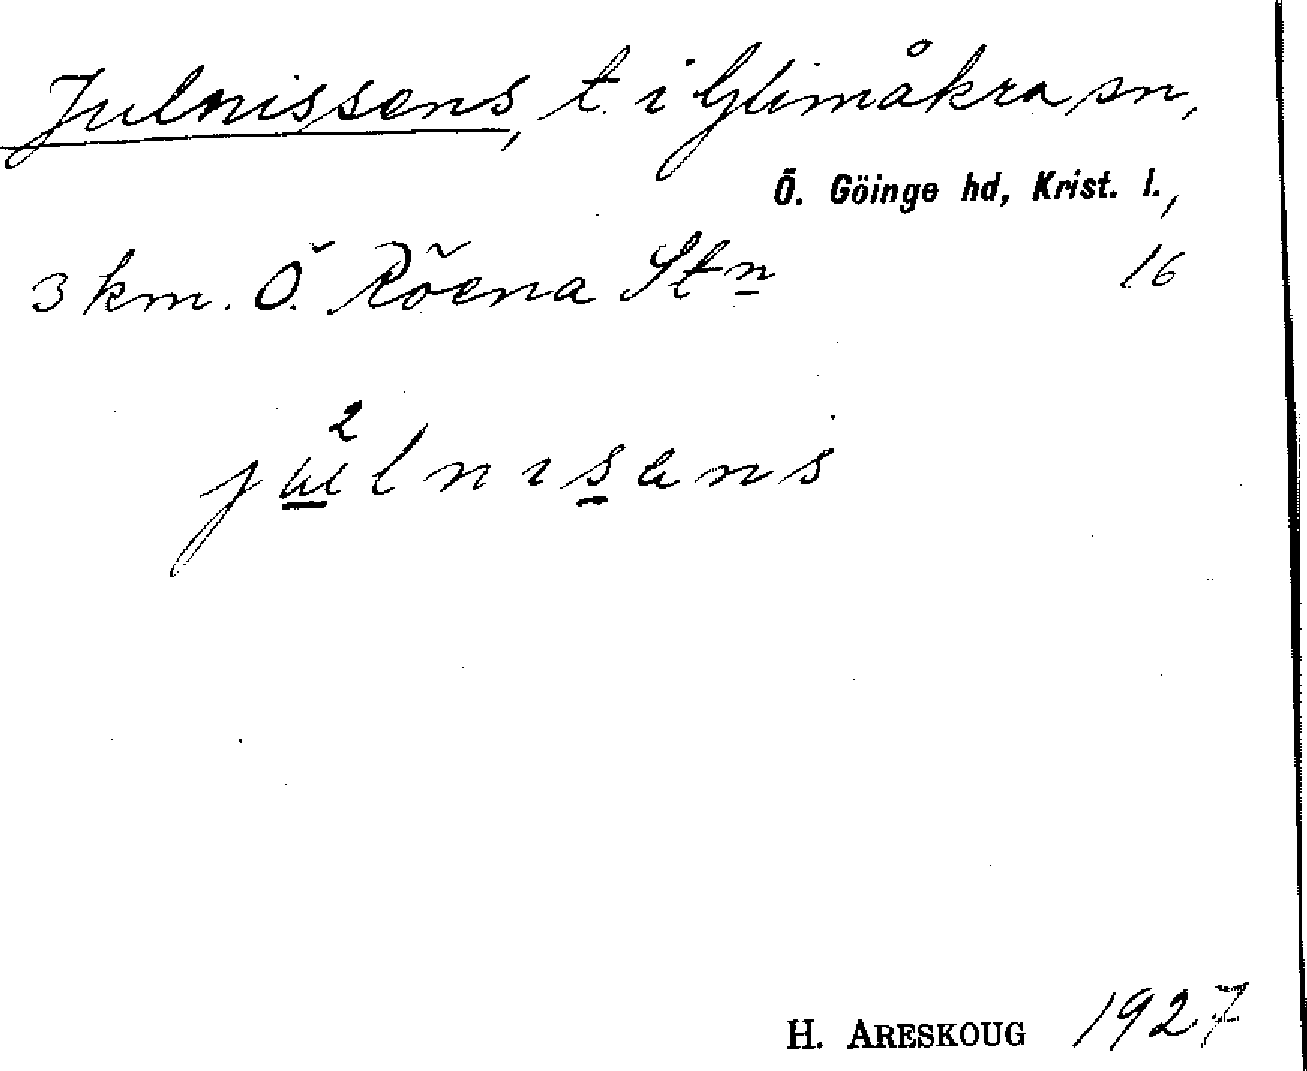 Julnissens, t. i Glimåkra sn,
Ö. Göinge hd, Krist. l.,
3 km. Ö. Röena Stn 16
2
julnisens
H. ARESKOUG 1927